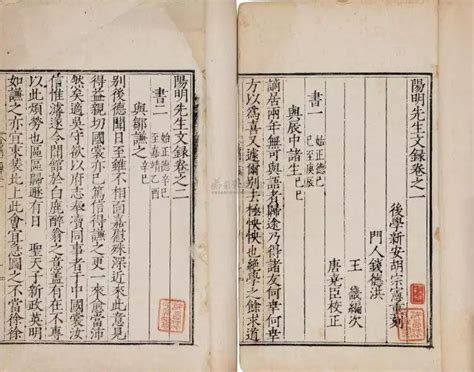 陽明先生文錄卷之一
後學新安胡宗憲重刻
門人錢德洪
王畿編次
唐嘉臣校正
書一 始正德己巳至庚辰
與辰中諸生 己巳
謫居兩年無可與語者歸途乃得諸友何幸何幸
方以爲喜又遽爾別去極怏怏也絕學之餘求道
陽明先生文錄卷之二
書二 始正德辛巳至嘉靖
與鄒謙之 辛巳
別後德聞日至雖不相面嘉慰殊深近來此意見
得益親切國裳亦已篤信得謙之更一來愈當沛
然矣適吳守欲以府志奉瀆同事者于中國裳汝
信惟濬遂令開館於白鹿醉翁之意蓋有在不專
以此煩勞也區區歸遁有日 聖天子新政英明
如謙之亦宜束裝北上此會宜急圖之不當徐徐